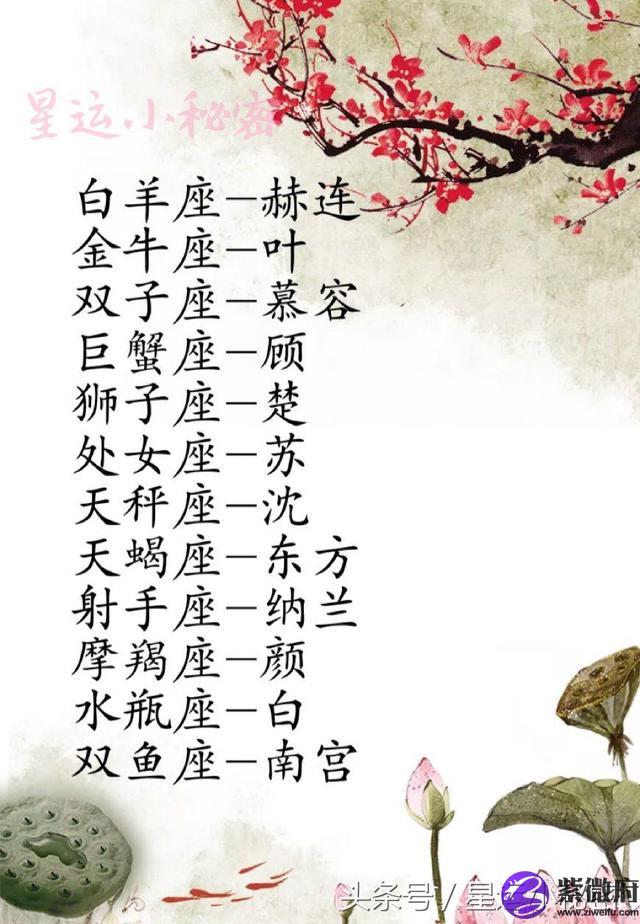 星运小秘密
白羊座—赫连
金牛座—叶
双子座—慕容
巨蟹座—顾
狮子座—楚
处女座—苏
天秤座—沈
天蝎座—东方
射手座—纳兰
摩羯座—颜
水瓶座—白
双鱼座—南宫
头条号 / 星
紫微府
www.ziweifu.com